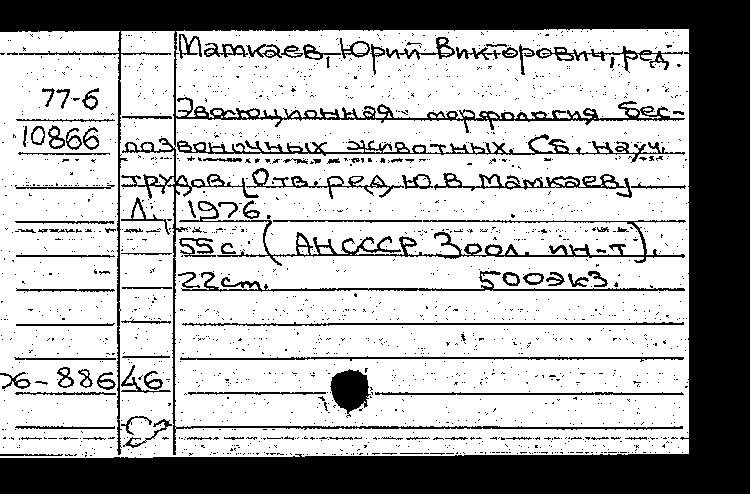 Маткаев, Юрий Викторович, ред.
77-6
Эволюционная морфология бес-
10866
позвоночных животных. Сб. науч.
трудов. [Отв. ред. Ю.В. Маткаев].
Л. 1976.
55 с. (АН СССР. Зоол. ин-т).
22 cm. 500 экз.
06-886 46